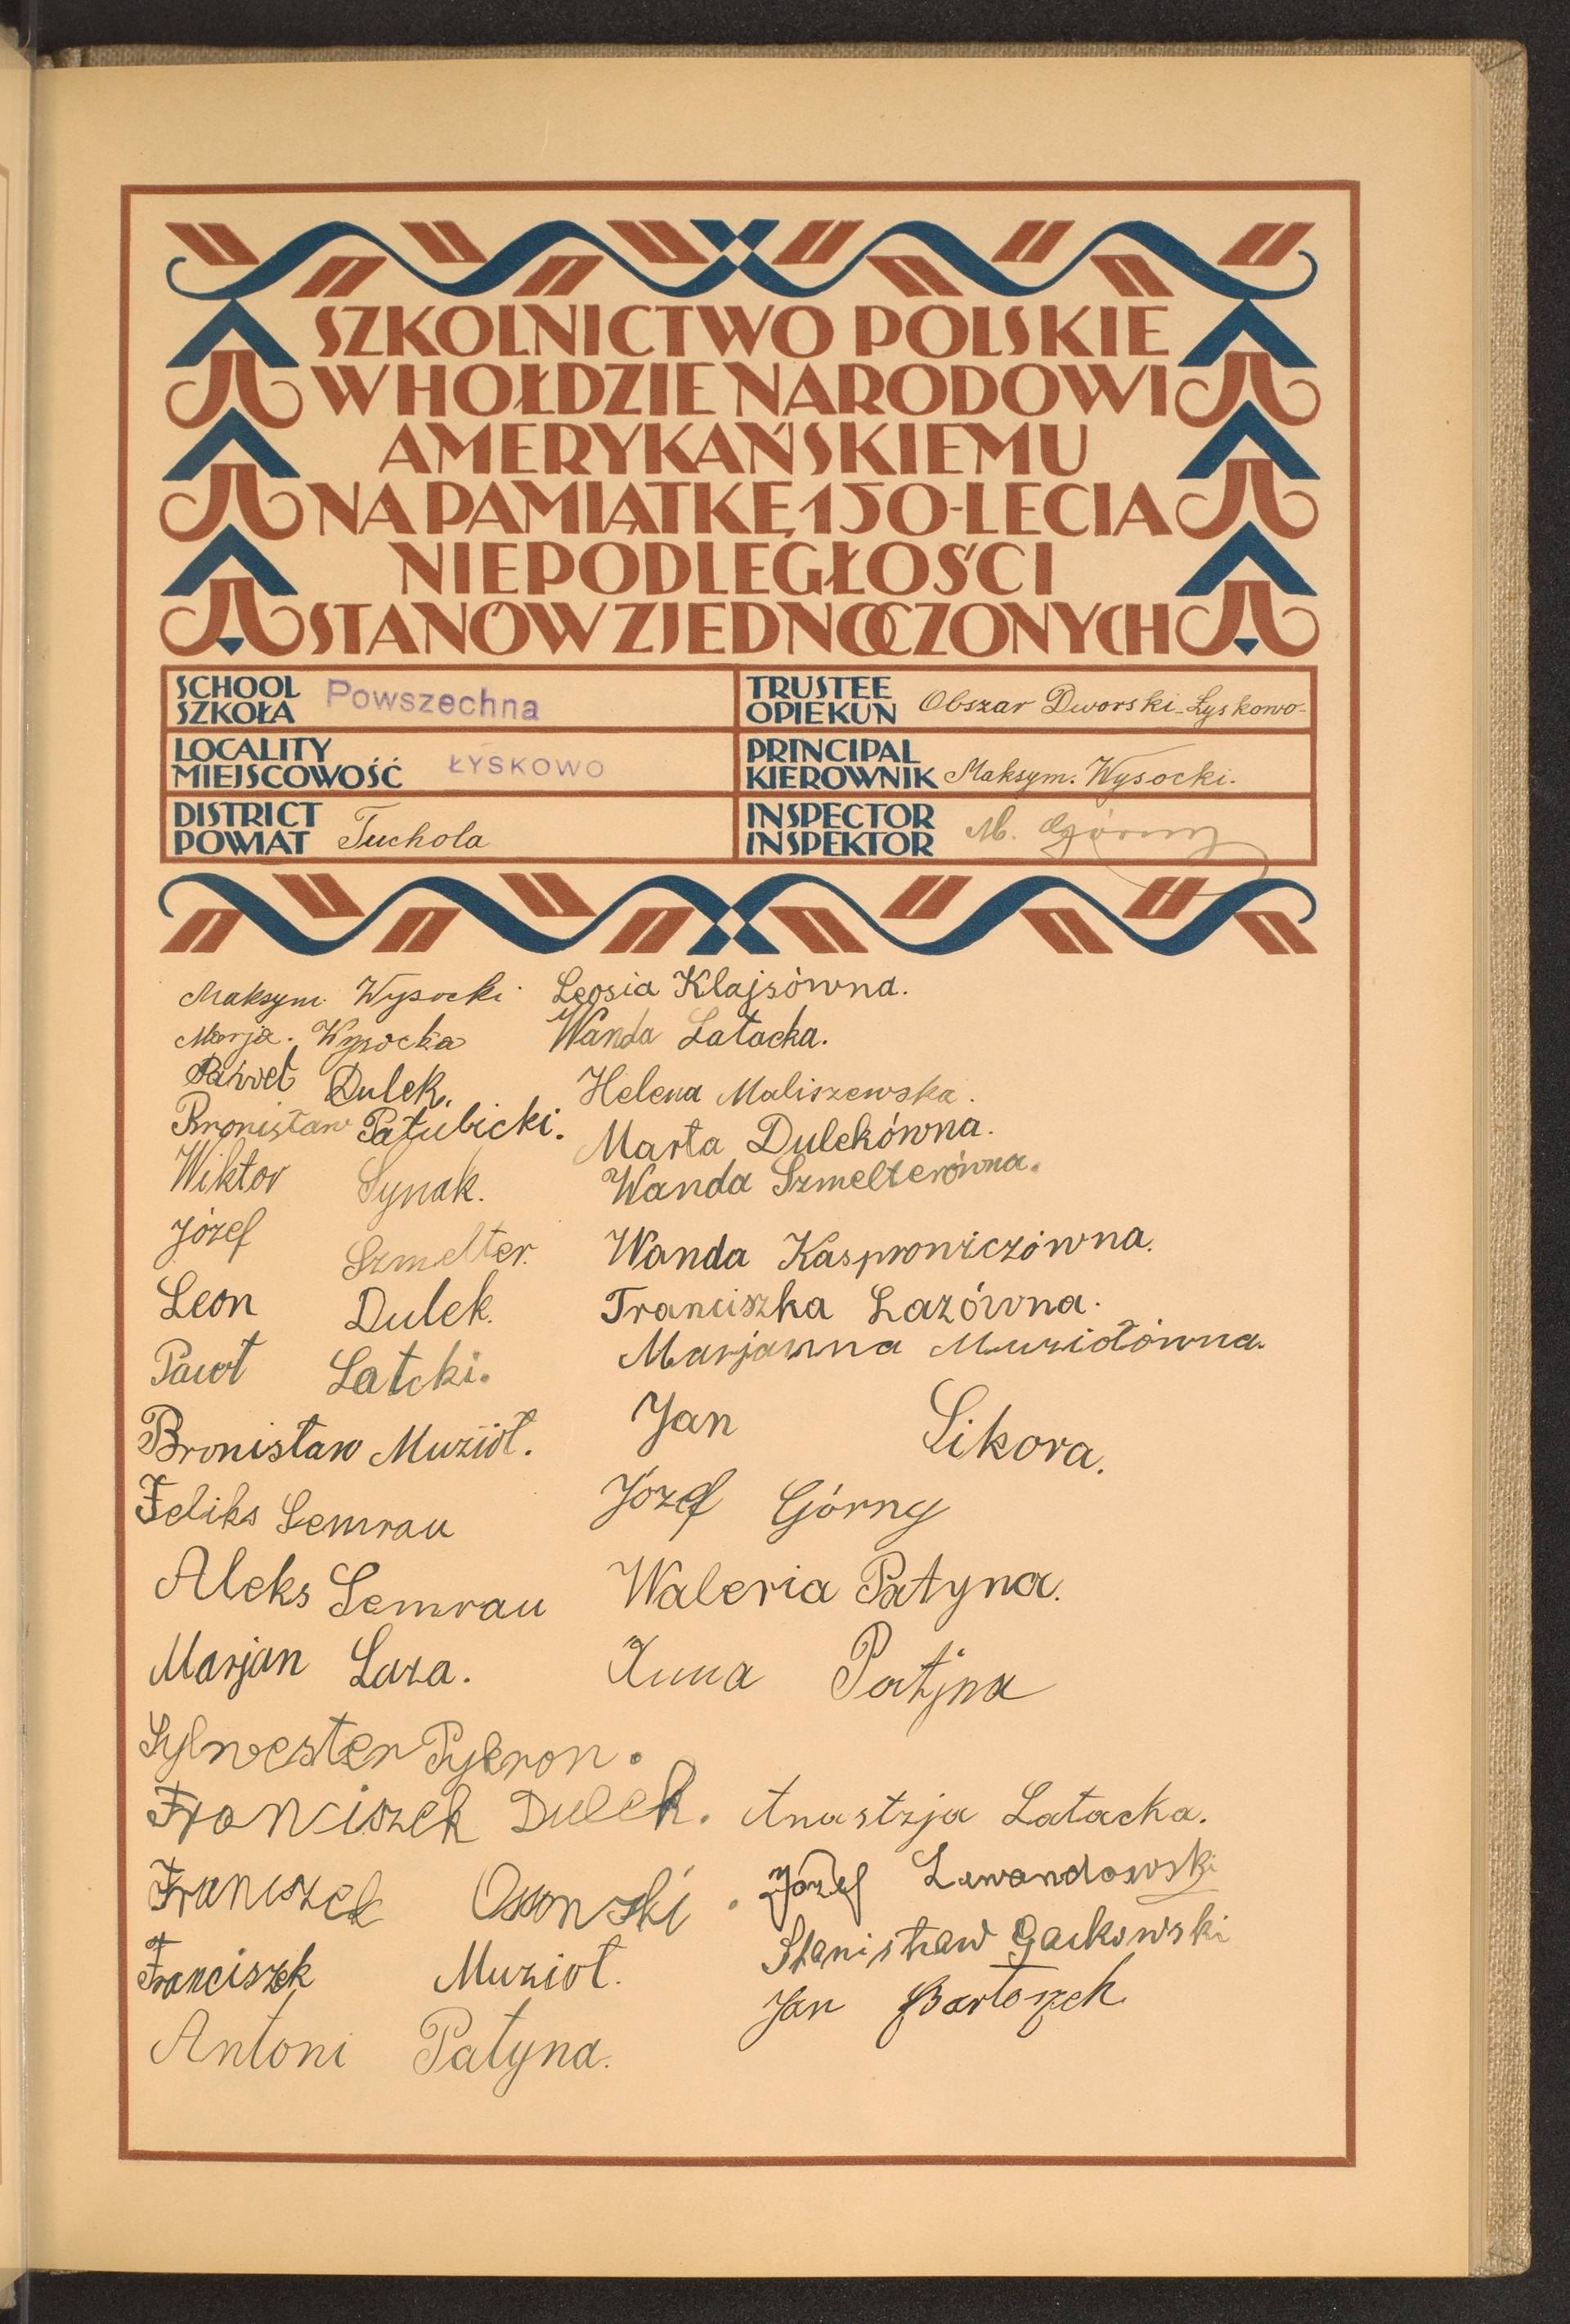 SZKOLNICTWO POLSKIE
W HOŁDZIE NARODOWI
AMERYKAŃSKIEMU
NA PAMIĄTKĘ 150-LECIA
NIEPODLEGŁOŚCI
STANÓW ZJEDNOCZONYCH
SCHOOL
SZKOŁA Powszechna
TRUSTEE
OPIEKUN Obszar Dworski-Łyskowo-
LOCALITY
MIEJSCOWOŚĆ ŁYSKOWO
PRINCIPAL
KIEROWNIK Maksym. Wysocki.
DISTRICT
POWIAT Tuchola
INSPECTOR
INSPEKTOR M. Górny
Maksym. Wysocki
Marja. Wysocka
Paweł Dulek.
Bronisław Patubicki.
Wiktor Synak.
Józef Szmelter.
Leon Dulek.
Pawł Latcki.
Bronisław Muzioł.
Feliks Semrau
Aleks Semrau
Marjan Laza.
Sylwester
Franciszek Dulek.
Franciszek
Franciszek Muzioł.
Antoni Patyna.
Leosia Klajsówna.
Wanda Latacka.
Helena Maliszewska.
Marta Dulekówna.
Wanda Szmelterówna.
Wanda Kasprowiczówna.
Franciszka Lazówna.
Marjanna Muziołówna.
Jan Sikora.
Józef Górny
Waleria Patyna.
Anna Patyna
Anastzja Latacka.
Józef Lewandowski
Stanisław Gackowski
Jan Bartoszek